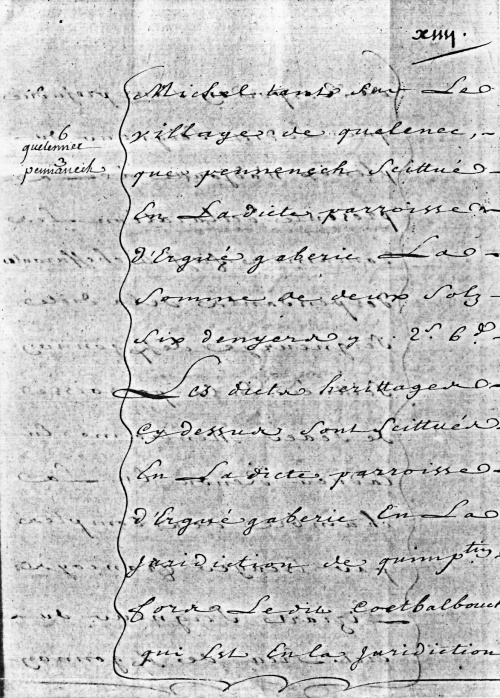 xiiij.
Michel tant sur Le
village de quelenec,
que pennenech scittué
En La dicte parroisse
d'Ergué gaberic La
somme de deux solz
six denyers y. 2s 6d
Les dicts herittages
cy dessus sont scittués
En La dicte parroisse
d'Ergué gaberic En La
Juridiction de quimptin
fors Le du Coetbalbouch
qui Est En la Juridiction
6
quelennec
penanech